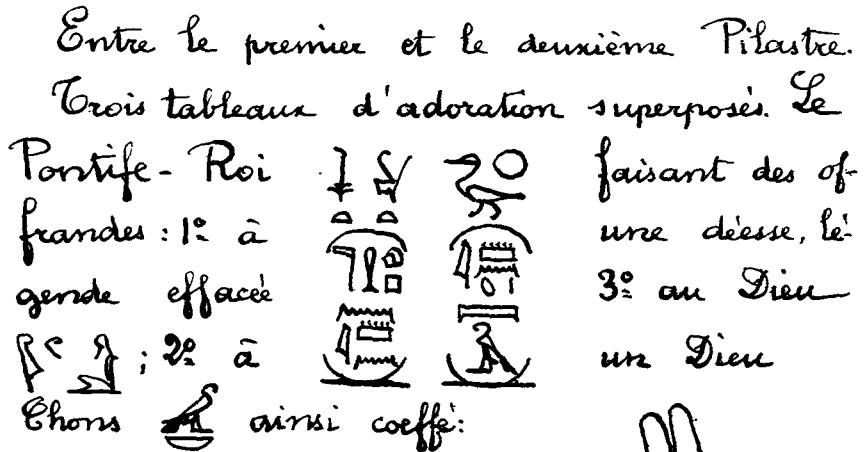 Entre le premier et le deuxième Pilastre.
Trois tableaux d'adoration superposés. Le
Pontife-Roi faisant des of-
frandes : 1º à une déesse, lé-
gende effacée 3º au Dieu
; 2º à un Dieu
Chons ainsi coeffé: